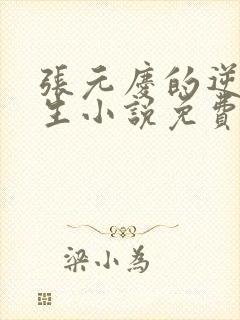 張元慶的逆
生小說免費
梁小為